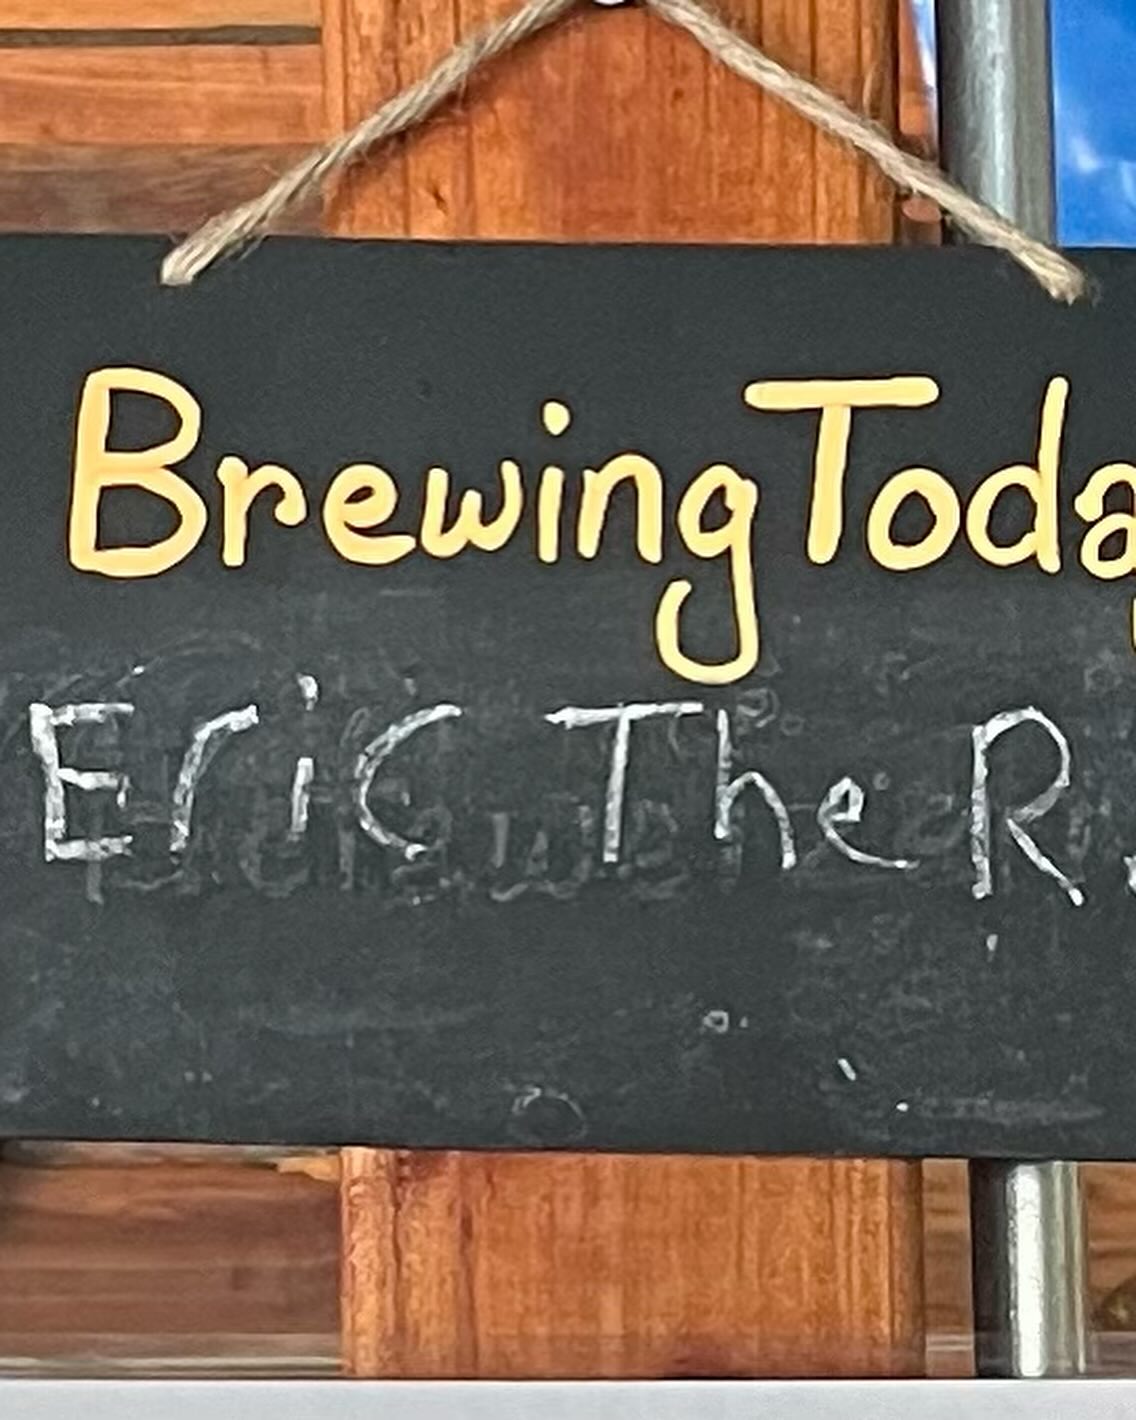 Brewing Toda
Eric The R